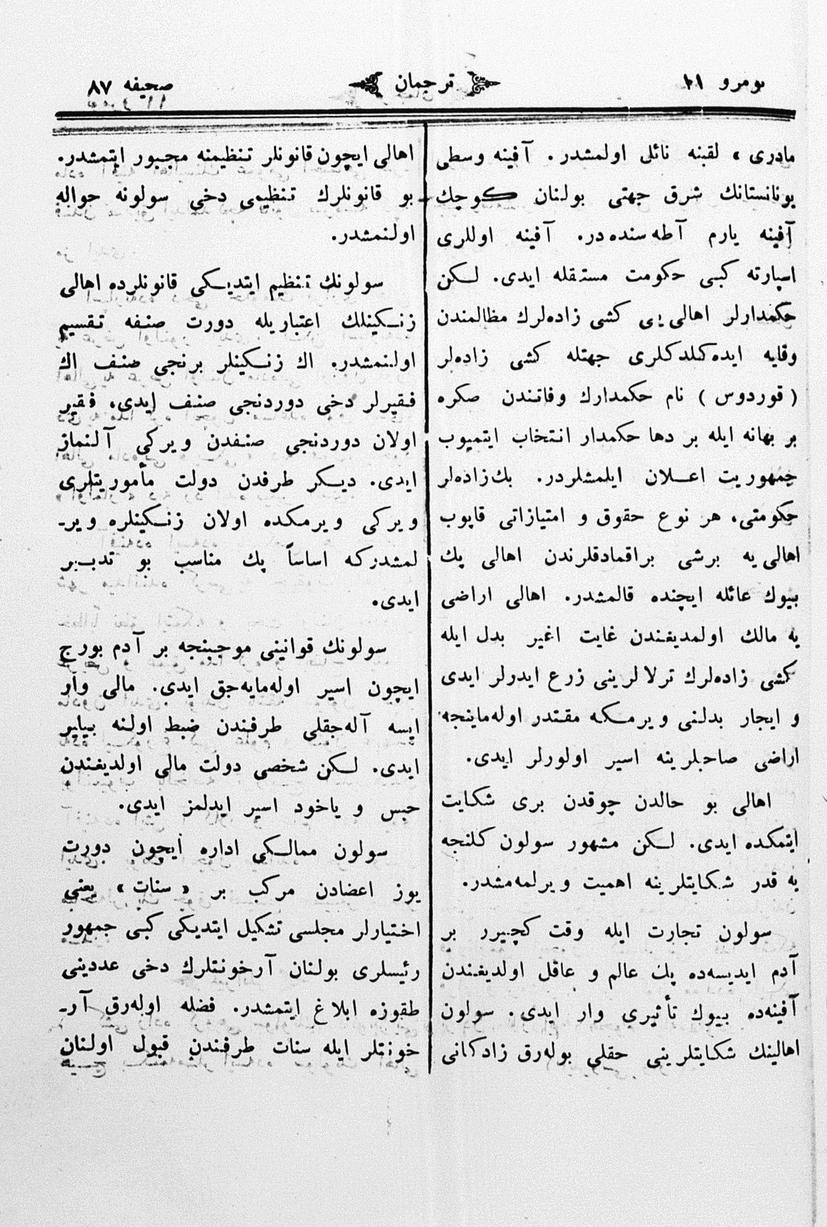 نومرو ١١
ترجمان
صحيفه ٨٧
مادری» لقبنه نائل اولمشدر. آفینه وسطی
یونانستانك شرق جهتی بولنان كوچك
آفینه یارم آطه سنده در. آفینه اوللری
اسپارته كبی حكومت مستقله ایدی. لكن
حكمدارلر اهالی یی كشی زاده لرك مظالمندن
وقایه ایده كلدكلری جهتله كشی زاده لر
(قوردوس) نام حكمدارك وفاتندن صكره
بر بهانه ایله بر دها حكمدار انتخاب ایتمیوب
جمهوریت اعلان ایلمشلردر. بك زاده لر
حكومتی، هر نوع حقوق و امتیازاتی قاپوب
اهالی یه برشی براقمادقلرندن اهالی پك
بیوك عائله ایچنده قالمشدر. اهالی اراضی
یه مالك اولمدیغندن غایت اغیر بدل ایله
كشی زاده لرك ترلالرینی زرع ایدرلر ایدی
و ایجار بدلنی ویرمكه مقتدر اوله ماینجه
اراضی صاحبلرینه اسیر اولورلر ایدی.
اهالی بو حالدن چوقدن بری شكایت
ایتمكده ایدی. لكن مشهور سولون كلنجه
یه قدر شكایتلرینه اهمیت ویرلمه مشدر.
سولون تجارت ایله وقت كچیرر بر
آدم ایدیسه ده پك عالم و عاقل اولدیغندن
آفینه ده بیوك تأثیری وار ایدی. سولون
اهالینك شكایتلرینی حقلی بوله رق زادكانی
اهالی ایچون قانونلر تنظیمنه مجبور ایتمشدر.
بو قانونلرك تنظیمی دخی سولونه حواله
اولنمشدر.
سولونك تنظیم ایتدیكی قانونلرده اهالی
زنكینلك اعتباریله دورت صنفه تقسیم
اولنمشدر. اك زنكینلر برنجی صنف اك
فقیرلر دخی دوردنجی صنف ایدی، فقیر
اولان دوردنجی صنفدن ویركی آلنماز
ایدی. دیكر طرفدن دولت مأموریتلری
ویركی ویرمكده اولان زنكینلره ویر-
لمشدركه اساساً پك مناسب بو تدبیر
ایدی.
سولونك قوانینی موجبنجه بر آدم بورج
ایچون اسیر اوله مایه جق ایدی. مالی وار
ایسه آله جقلی طرفندن ضبط اولنه بیلیر
ایدی. لكن شخصی دولت مالی اولدیغندن
حبس و یاخود اسیر ایدلمز ایدی.
سولون ممالكی اداره ایچون دورت
یوز اعضادن مركب بر «سنات» یعنی
اختیارلر مجلسی تشكیل ایتدیكی كبی جمهور
رئیسلری بولنان آرخونتلرك دخی عددینی
طقوزه ابلاغ ایتمشدر. فضله اوله رق آر-
خونتلر ایله سنات طرفندن قبول اولنان